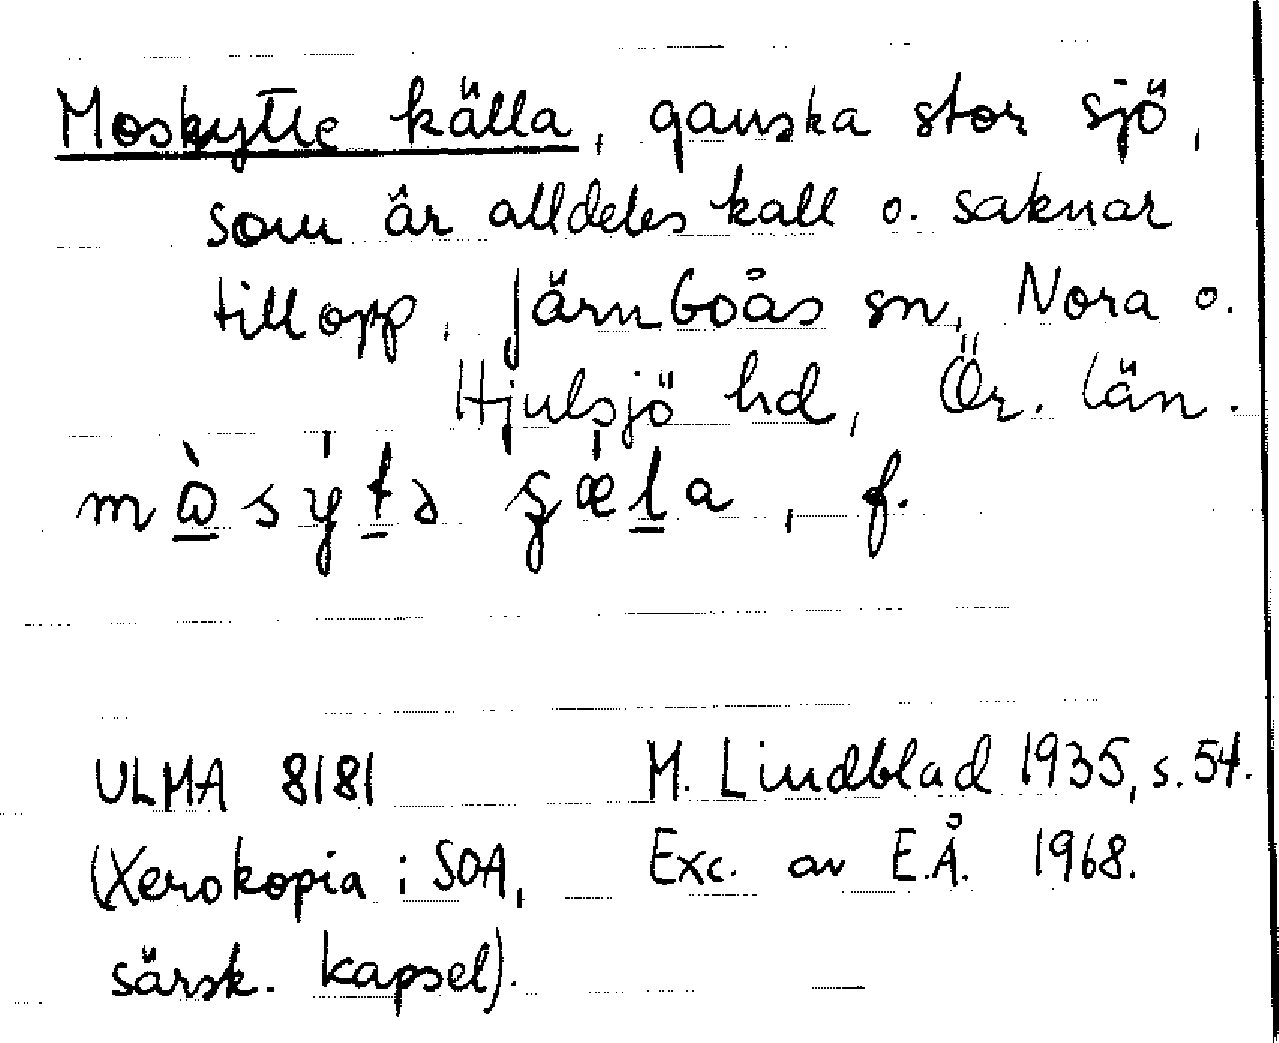 Moskytte källa, ganska stor sjö,
som är alldeles kall o. saknar
tillopp. Järnboås sn, Nora o.
Hjulsjö hd, Ör. län.
ULMA 8181 M. Lindblad 1935, s. 54.
(Xerokopia i SOA, Exc. av E.Å. 1968.
särsk. kapsel).